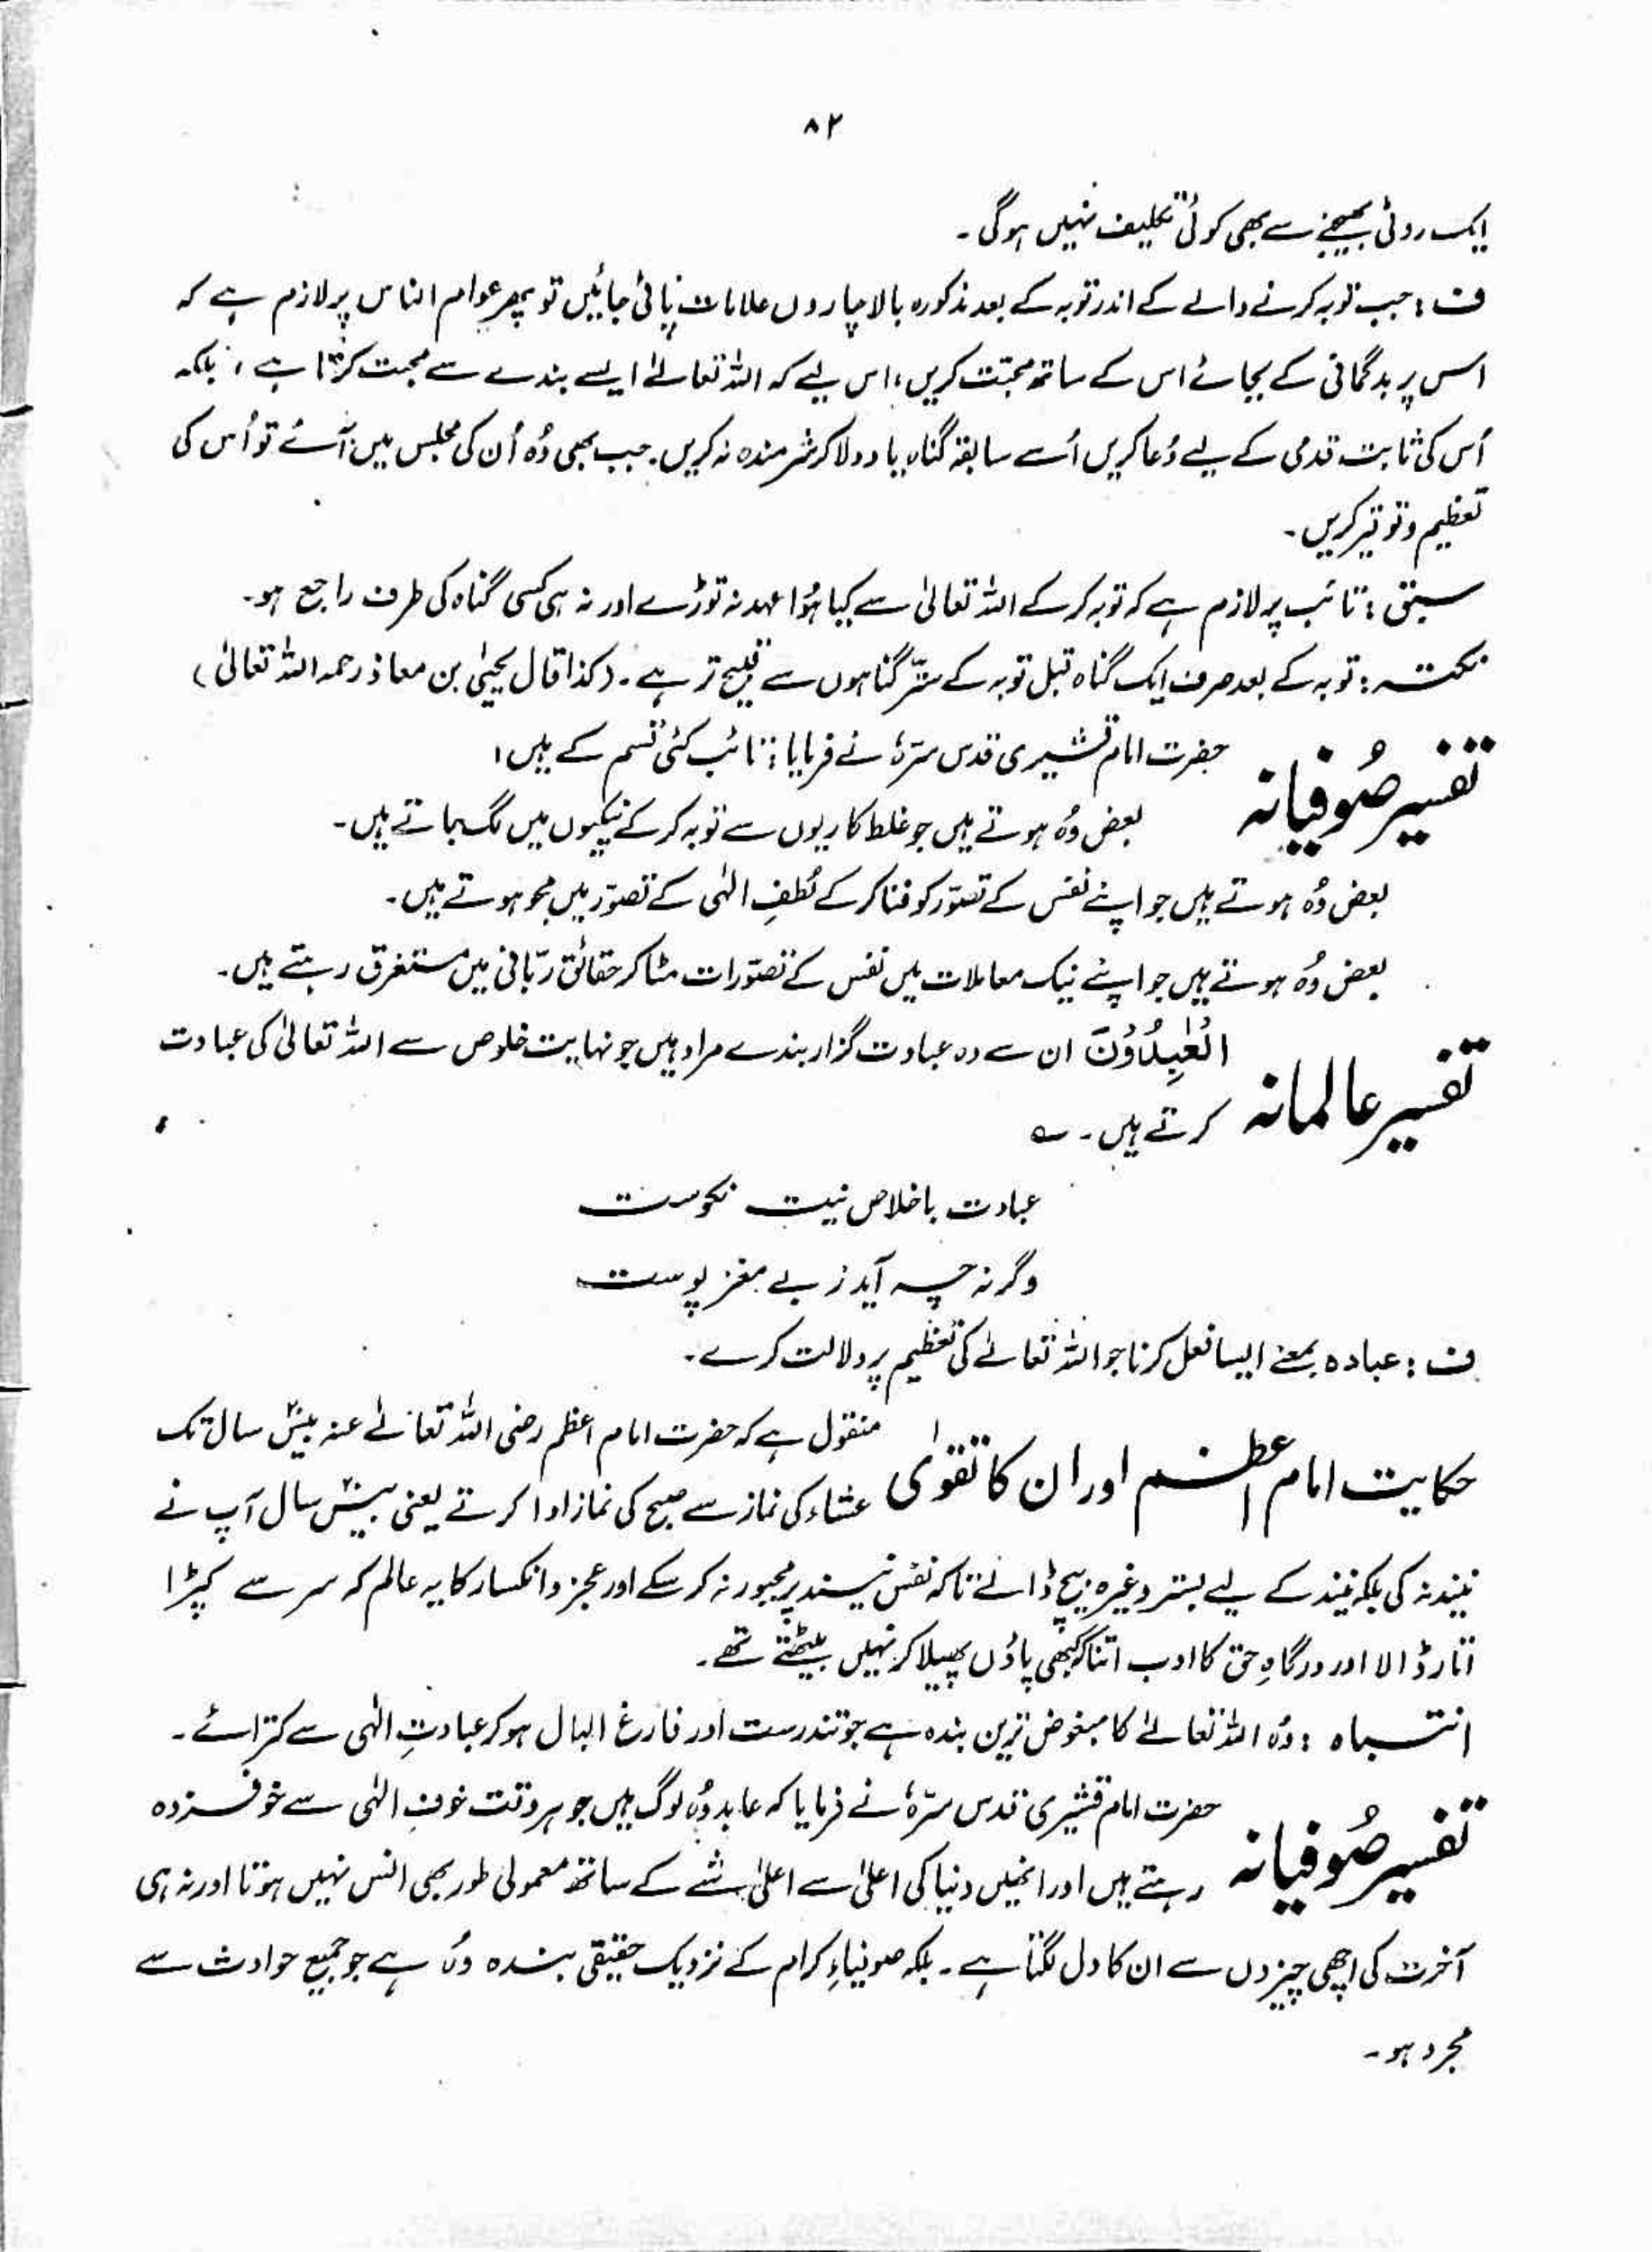 ۸۲
ایک روٹی بھیجنے سے بھی کوئی تکلیف نہیں ہوگی۔
ف : جب توبہ کرنے والے کے اندر توبہ کے بعد مذکورہ بالا چاروں علامات پائی جائیں تو پھر عوام الناس پر لازم ہے کہ
اس پر بدگمانی کے بجائے اس کے ساتھ محبّت کریں، اس لیے کہ اللہ تعالےٰ ایسے بندے سے محبت کرتا ہے ، بلکہ
اُس کی ثابت قدمی کے لیے دُعا کریں اُسے سابقہ گناہ یاد دلا کر شرمندہ نہ کریں۔ جب بھی وُہ اُن کی مجلس میں آئے تو اُس کی
تعظیم و توقیر کریں۔
سبق : تائب پر لازم ہے کہ توبہ کر کے اللہ تعالیٰ سے کیا ہُوا عہد نہ توڑے اور نہ ہی کسی گناہ کی طرف راجع ہو۔
نکتہ : توبہ کے بعد صرف ایک گناہ قبل توبہ کے ستّر گناہوں سے قبیح تر ہے۔ (کذا قال یحییٰ بن معاذ رحمہ اللہ تعالیٰ)
تفسیر صُوفیانہ حضرت امام قشیری قدس سرّہٗ نے فرمایا : تائب کئی قسم کے ہیں :
بعض وُہ ہوتے ہیں جو غلط کاریوں سے توبہ کر کے نیکیوں میں لگ جاتے ہیں۔
بعض وُہ ہوتے ہیں جو اپنے نفس کے تصوّر کو فنا کر کے لُطفِ الٰہی کے تصوّر میں محو ہوتے ہیں۔
بعض وُہ ہوتے ہیں جو اپنے نیک معاملات میں نفس کے تصوّرات مٹا کر حقائق ربّانی میں مستغرق رہتے ہیں۔
تفسیر عالمانہ الْعٰبِدُوْنَ ان سے وہ عبادت گزار بندے مراد ہیں جو نہایت خلوص سے اللہ تعالیٰ کی عبادت
کرتے ہیں۔ ؎
عبادت باخلاص نیت نکوست
وگرنہ چہ آید ز بے مغز پوست
ف : عبادہ بمعنے ایسا فعل کرنا جو اللہ تعالےٰ کی تعظیم پر دلالت کرے۔
حکایت امام اعظم اور ان کا تقوٰی منقول ہے کہ حضرت امام اعظم رضی اللہ تعالےٰ عنہ بیس۲۰ سال تک
عشاء کی نماز سے صبح کی نماز ادا کرتے یعنی بیس۲۰ سال آپ نے
نیند نہ کی بلکہ نیند کے لیے بستر وغیرہ بیچ ڈالے تاکہ نفس نیند پر مجبور نہ کر سکے اور عجز و انکسار کا یہ عالم کہ سر سے کپڑا
اتار ڈالا اور درگاہِ حق کا ادب اتنا کہ کبھی پاؤں پھیلا کر نہیں بیٹھتے تھے۔
انتباہ : وُہ اللہ تعالےٰ کا مبغوض ترین بندہ ہے جو تندرست اور فارغ البال ہو کر عبادتِ الٰہی سے کترائے۔
تفسیر صُوفیانہ حضرت امام قشیری قدس سرّہٗ نے فرمایا کہ عابد وُہ لوگ ہیں جو ہر وقت خوفِ الٰہی سے خوفزدہ
رہتے ہیں اور انھیں دنیا کی اعلیٰ سے اعلیٰ شے کے ساتھ معمولی طور بھی انس نہیں ہوتا اور نہ ہی
آخرت کی اچھی چیزوں سے ان کا دل لگتا ہے۔ بلکہ صوفیاءِ کرام کے نزدیک حقیقی بندہ وُہ ہے جو جمیع حوادث سے
مجرد ہو۔